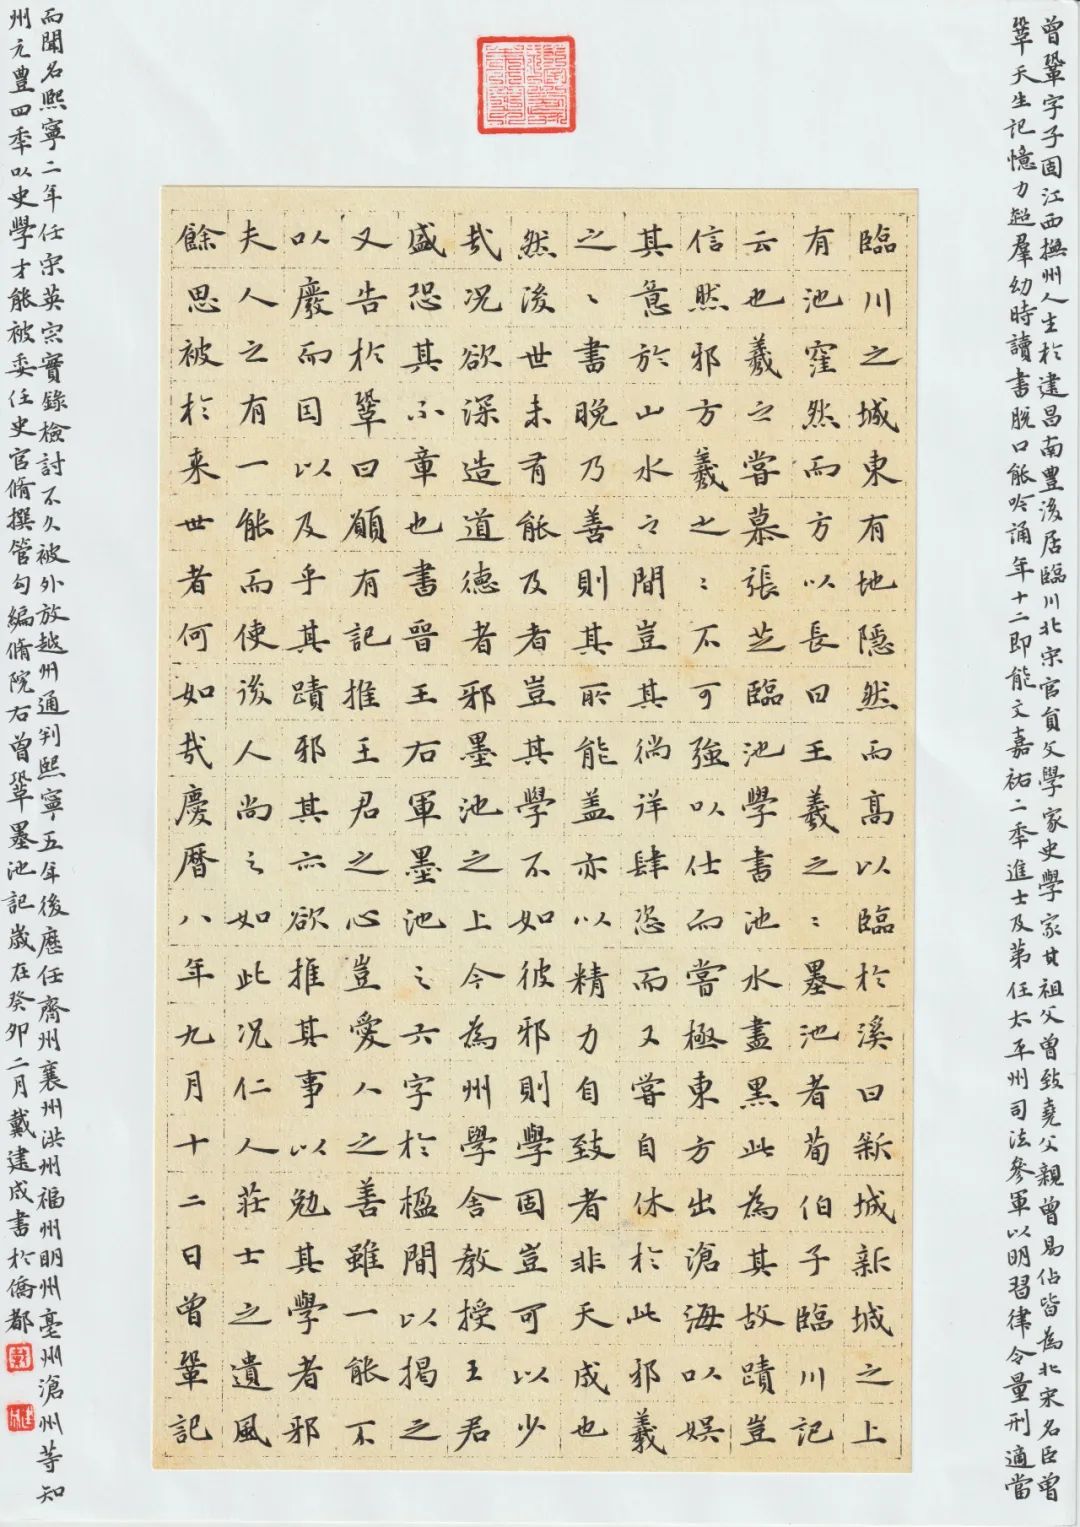 曾鞏字子固江西撫州人生於建昌南豐後居臨川北宋官員文學家史學家其祖父曾致堯父親曾易佔皆為北宋名臣曾
鞏天生記憶力超羣幼時讀書脫口能吟誦年十二即能文嘉祐二年進士及第任太平州司法參軍以明習律令量刑適當
臨川之城東有地隱然而高以臨於溪曰新城新城之上
有池窪然而方以長曰王羲之〻墨池者荀伯子臨川記
云也羲之嘗慕張芝臨池學書池水盡黑此為其故蹟豈
信然邪方羲之〻不可強以仕而嘗極東方出滄海以娛
其意於山水之間豈其徜徉肆恣而又嘗自休於此邪羲
之〻書晚乃善則其所能蓋亦以精力自致者非天成也
然後世未有能及者豈其學不如彼邪則學固豈可以少
哉況欲深造道德者邪墨池之上今為州學舍教授王君
盛恐其不章也書晉王右軍墨池之六字於楹間以揭之
又告於鞏曰願有記推王君之心豈愛人之善雖一能不
以廢而因以及乎其蹟邪其亦欲推其事以勉其學者邪
夫人之有一能而使後人尚之如此況仁人莊士之遺風
餘思被於來世者何如哉慶曆八年九月十二日曾鞏記
而聞名熙寧二年任宋英宗實錄檢討不久被外放越州通判熙寧五年後歷任齊州襄州洪州福州明州亳州滄州等知
州元豐四年以史學才能被委任史官脩撰管勾編脩院右曾鞏墨池記歲在癸卯二月戴建成書於僑都